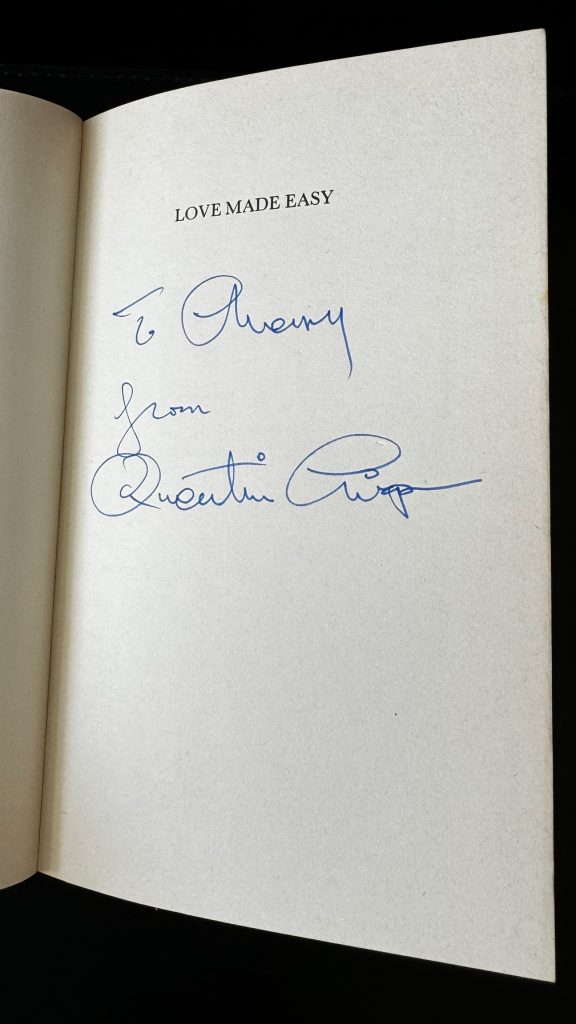 LOVE MADE EASY
To
from
Quentin Crisp